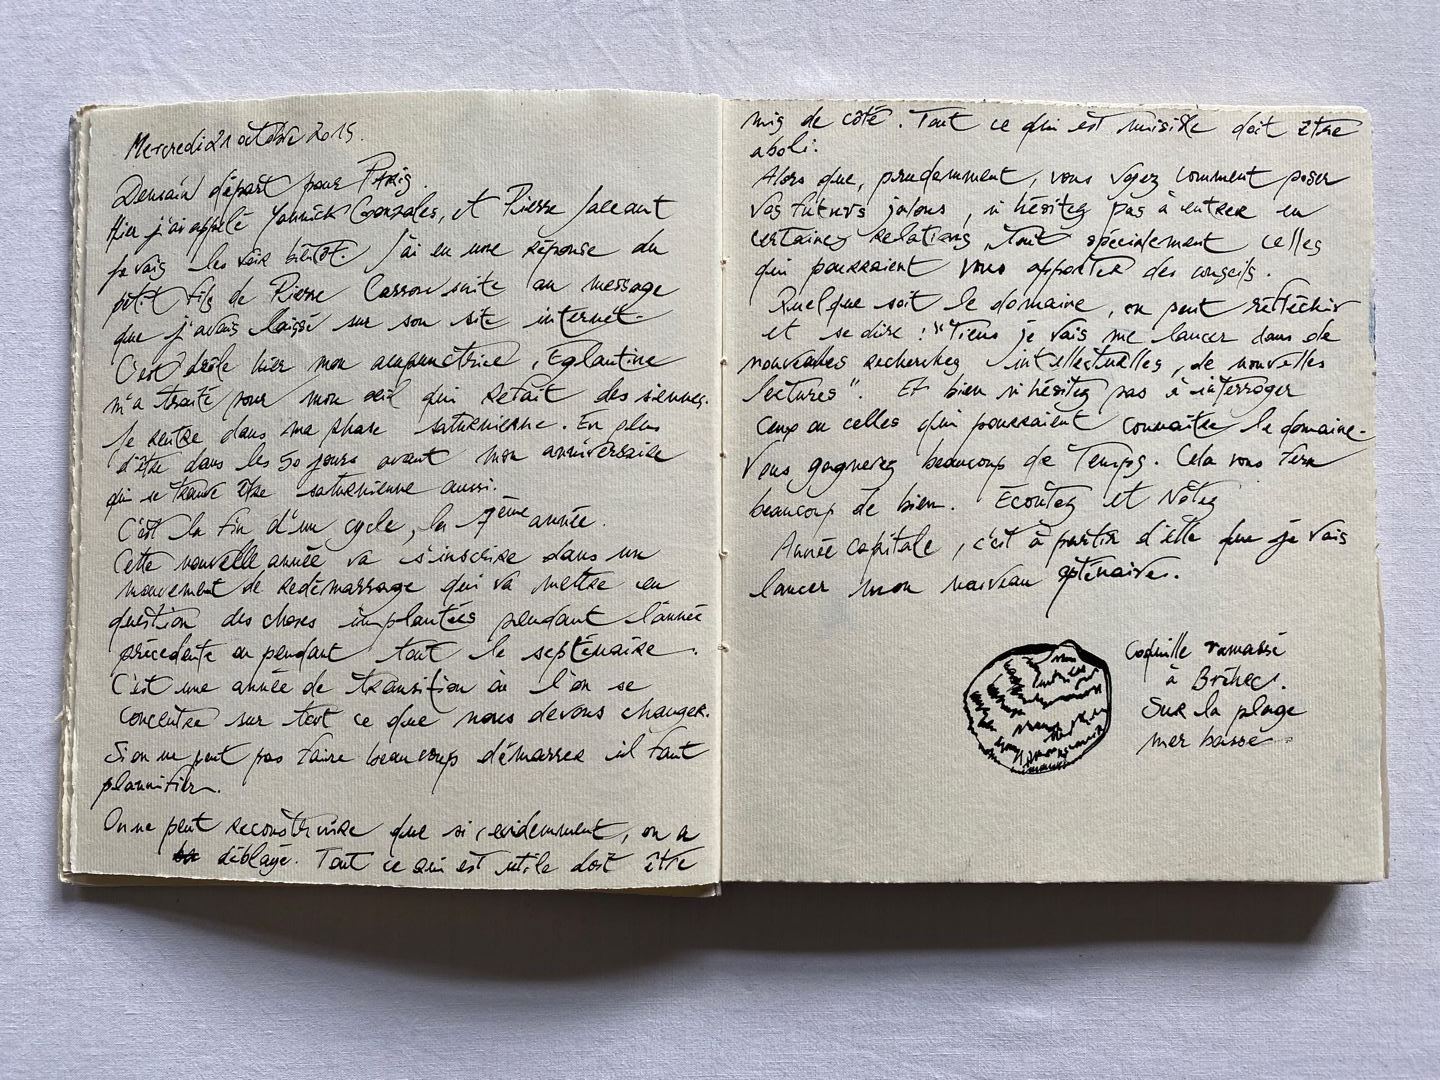 Mercredi 21 octobre 2015.
Demain départ pour Paris.
Hier j'ai appelé Yannick Gonzales, et Pierre Jaccaut
je vais les voir bientôt. J'ai eu une réponse du
petit fils de Pierre Carron suite au message
que j'avais laissé sur son site internet.
C'est drôle hier mon acupunctrice, Eglantine
m'a traité pour mon œil qui refait des siennes.
Je rentre dans ma phase saturnienne. En plus
d'être dans les 50 jours avant mon anniversaire
qui se trouve être saturnienne aussi.
C'est la fin d'un cycle, la 7ème année.
Cette nouvelle année va s'inscrire dans un
mouvement de redémarrage qui va mettre en
question des choses implantées pendant l'année
précédente ou pendant tout le septénaire.
C'est une année de transition où l'on se
concentre sur tout ce que nous devons changer.
Si on ne peut pas faire beaucoup démarrer il faut
plannifier.
On ne peut reconstruire que si, evidemment, on a
déblayé. Tout ce qui est utile doit être
mis de côté. Tout ce qui est nuisible doit être
aboli.
Alors que, prudemment, vous voyez comment poser
vos futurs jalons, n'hésitez pas à entrer en
certaines relations tout spécialement celles
qui pourraient vous apporter des conseils.
Quelque soit le domaine, on peut réfléchir
et se dire : "Tiens je vais me lancer dans de
nouvelles recherches intellectuelles, de nouvelles
lectures". Et bien n'hésitez pas à interroger
ceux ou celles qui pourraient connaître le domaine.
Vous gagnerez beaucoup de temps. Cela vous fera
beaucoup de bien. Ecoutez et Notez
Année capitale, c'est à partir d'elle que je vais
lancer mon nouveau septénaire.
Coquille ramassé
à Bréhec.
Sur la plage
mer basse